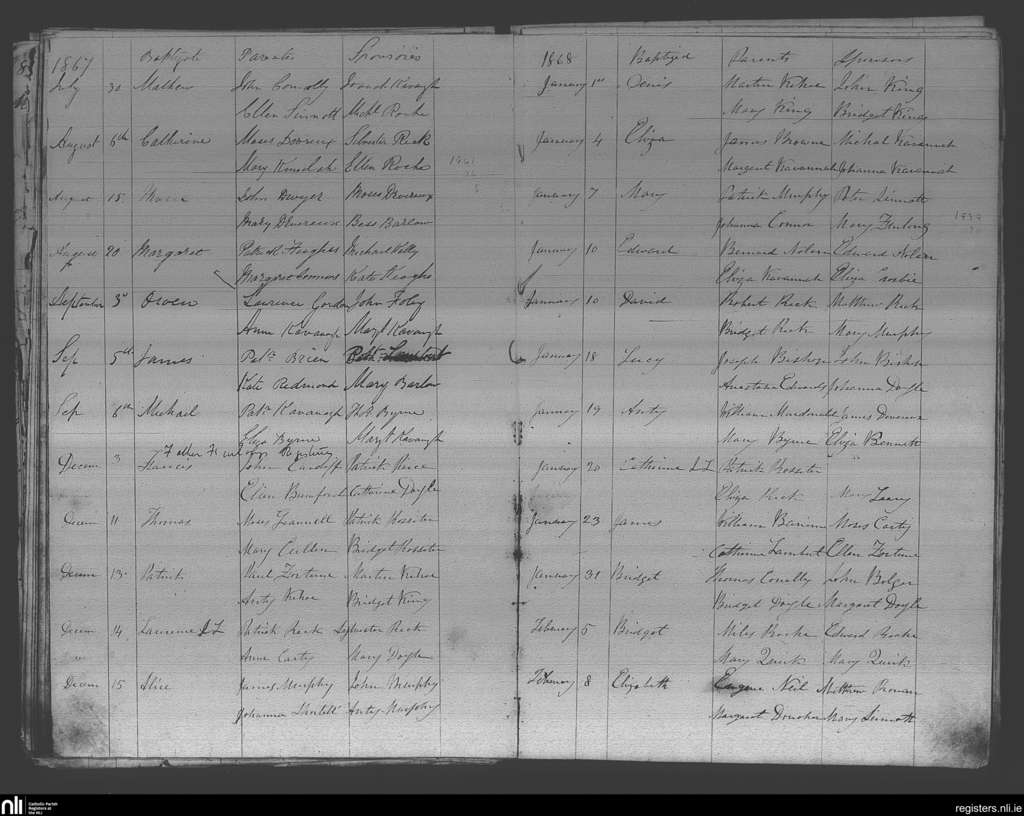 1867 Baptized Parents Sponsors
July 30 Mathew John Connolly Kavagh
Ellen Sinnott Michl Roche
August 6th Catherine Moses Sylvester Rick
Mary Kinselah Ellen Roche
August 15 John Dwyer Moses Devereux
Mary Devereux Bess Barlow
August 20 Margaret Patrick Hughes Michael Kelly
Margaret Connors Kate Hughs
September 3d Owen Laurence Gordon John Foley
Anne Kavangh Margt Kavangh
Sep 5th James Patk Brien
Kate Redmond Mary Barlow
Sep 6th Michael Patk Kavanagh Thos Byrne
Eliza Byrne Margt Kavangh
Father
Decem 3 Francis John Cardiff Patrick
Ellen Bumford Catherine Doyle
Decem 11 Thomas Moses Scannell Patrick Rossiter
Mary Cullen Bridget Rossiter
Decem 13 Patrick Paul Fortune Martin Kehoe
Anty Kehoe Bridget King
Decem 14 Laurence Patrick Rock Sylvester Rock
Anne Carty Mary Doyle
Decem 15 Alice James Murphy John Murphy
Johanna Anty Murphy
1868 Baptized Parents Sponsors
January 1st Denis Martin Kehoe John King
Mary King Bridget King
January 4 Eliza James Browne Michal Kavanah
Margaret Kavannah Johanna Kavannah
January 7 Mary Patrick Murphy Peter Sinnott
Johanna Connor Mary Furlong
January 10 Edward Bernard Nolan Edward Nolan
Eliza Kavannah Eliza
January 10 David Robert Rick Matthew Rick
Bridget Rick Mary Murphy
January 18 Lucy Joseph Bishop John Bishop
Anastasia Edwards Johanna Doyle
January 19 Anty William Macdonald James Devereux
Mary Byrne Eliza Bennett
January 20 Catherine Patrick Rossiter
Eliza Rick Mary Leary
January 23 James William Moses Carty
Catherine Lambert Ellen Fortune
January 31 Bridget Thomas Conolly John Bolger
Bridget Doyle Margaret Doyle
February 5 Bridget Miles Roche Edward Roche
Mary Quirk Mary Quirk
February 8 Elizabeth Eugene Neil Matthew
Margaret Mary Sinnott
nli Catholic Parish Registers at the NLI
registers.nli.ie